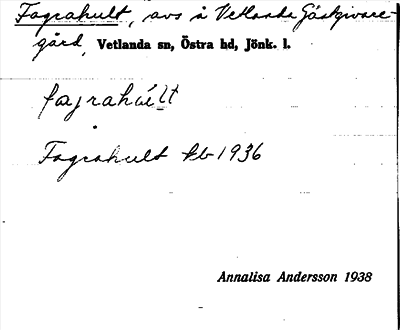 Fagrahult, avs å Vetlanda Gästgivare-
gård, Vetlanda sn, Östra hd, Jönk. l.
fagrahúlt
Fagrahult kb 1936
Annalisa Andersson 1938